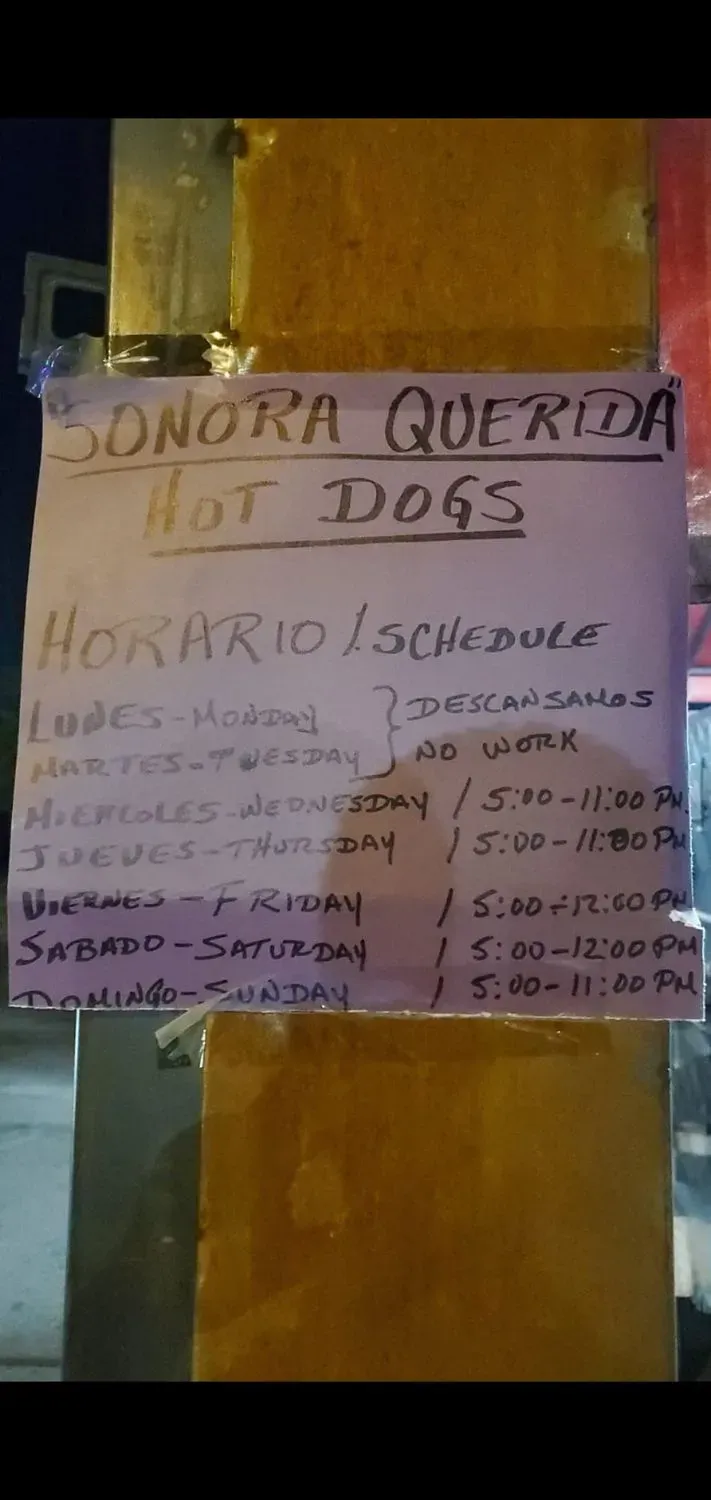 "SONORA QUERIDA"
HOT DOGS
HORARIO / SCHEDULE
LUNES-MONDAY } DESCANSAMOS
MARTES-TUESDAY } NO WORK
MIERCOLES-WEDNESDAY / 5:00-11:00 PM.
JUEVES-THURSDAY / 5:00-11:00 PM
VIERNES-FRIDAY / 5:00-12:00 PM
SABADO-SATURDAY / 5:00-12:00 PM
DOMINGO-SUNDAY / 5:00-11:00 PM